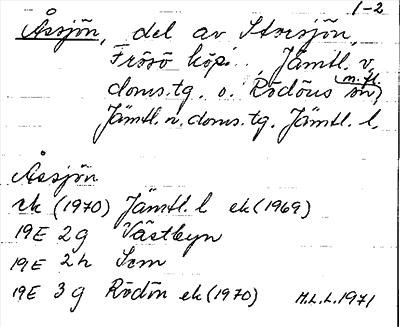 1-2
Åssjön, del av Storsjön,
Frösö köp.. Jämtl. v.
doms.tg. o. Rödöns sn,
m.fl.
Jämtl. n. doms.tg. Jämtl. l.
Åssjön
ek (1970) Jämtl. l ek (1969)
19E 2g Västbyn
19E 2h Sem
19E 3g Rödön ek (1970) M.L.L. 1971